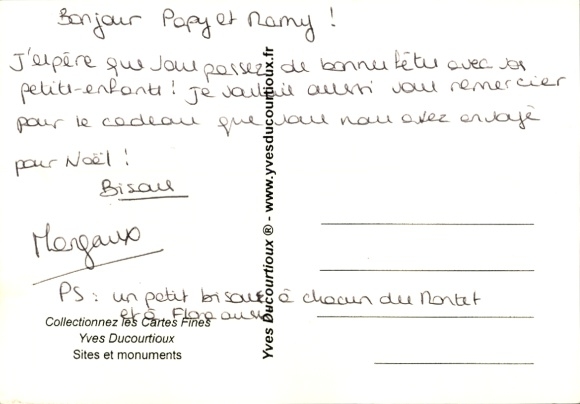 Bonjour Papy et Mamy !
J'espère que vous passez de bonnes fêtes avec vos
petits-enfants ! Je voulais aussi vous remercier
pour le cadeau que vous nous avez envoyé
pour Noël !
Bisous
Margaux
PS : un petit bisous à chacun du Montet
et à Flora aussi
Collectionnez les Cartes Fines
Yves Ducourtioux
Sites et monuments
Yves Ducourtioux ® - www.yvesducourtioux.fr